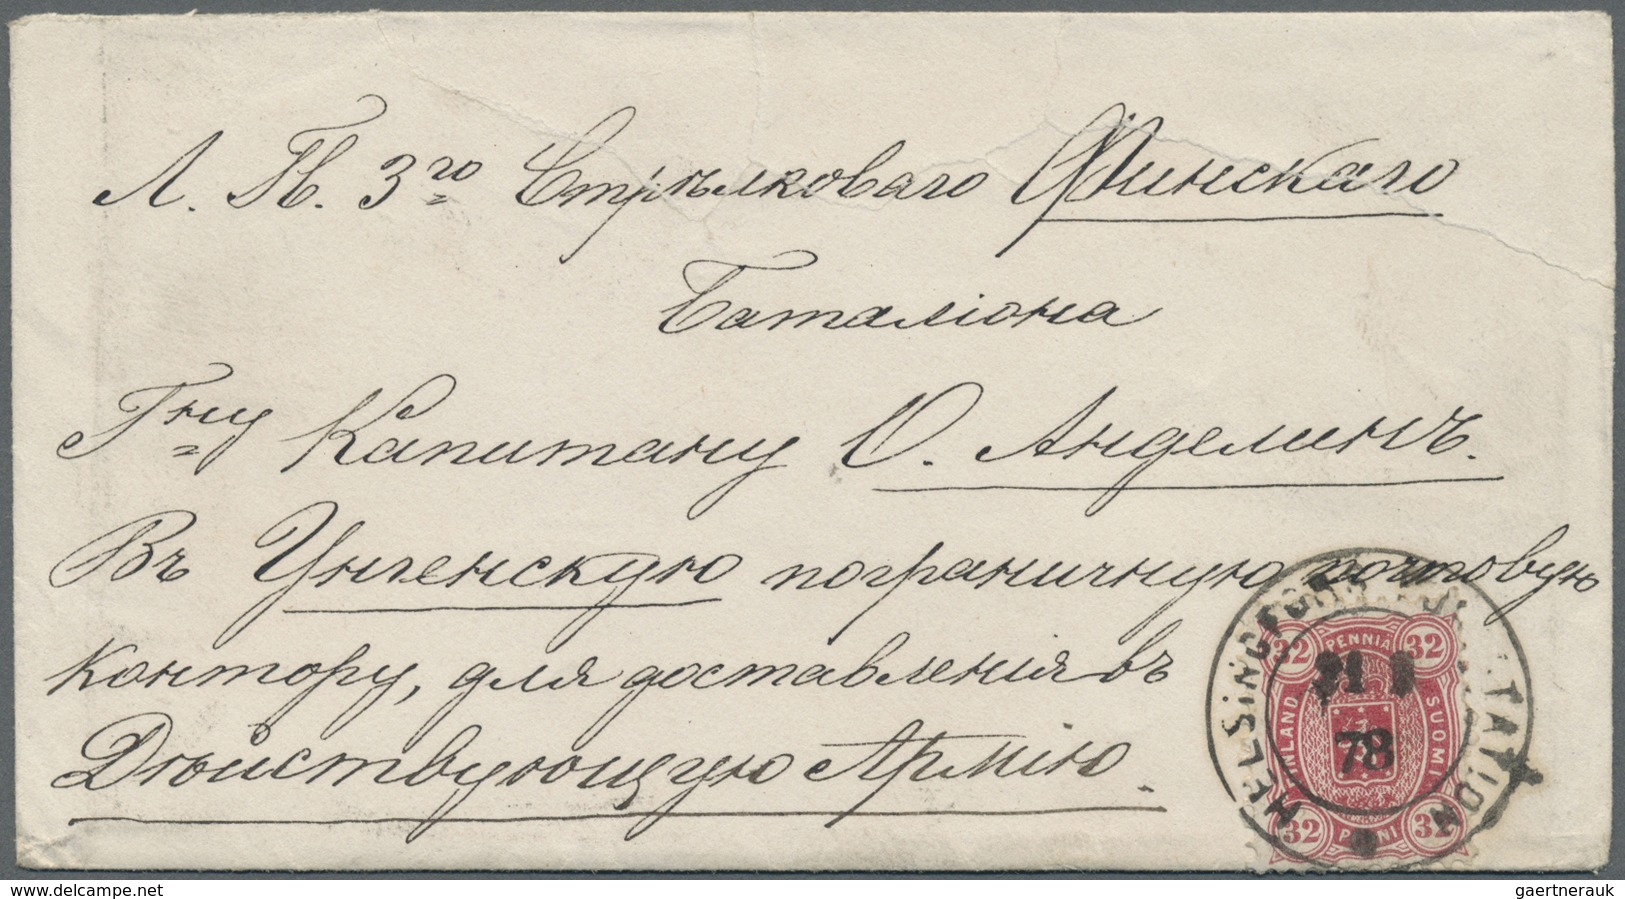 Л. Гв. 3го Стрѣлковаго Финскаго
Баталіона
Гну Капитану О. Анделинъ.
Въ Унгенскую пограничную почтовую
контору, для доставленія въ
Дѣйствующую Армію.
HELSINGFORS STATION
78
32 PENNIÄ 32
FINLAND
SUOMI
32 PENNI 32
www.delcampe.net
gaertnerauk